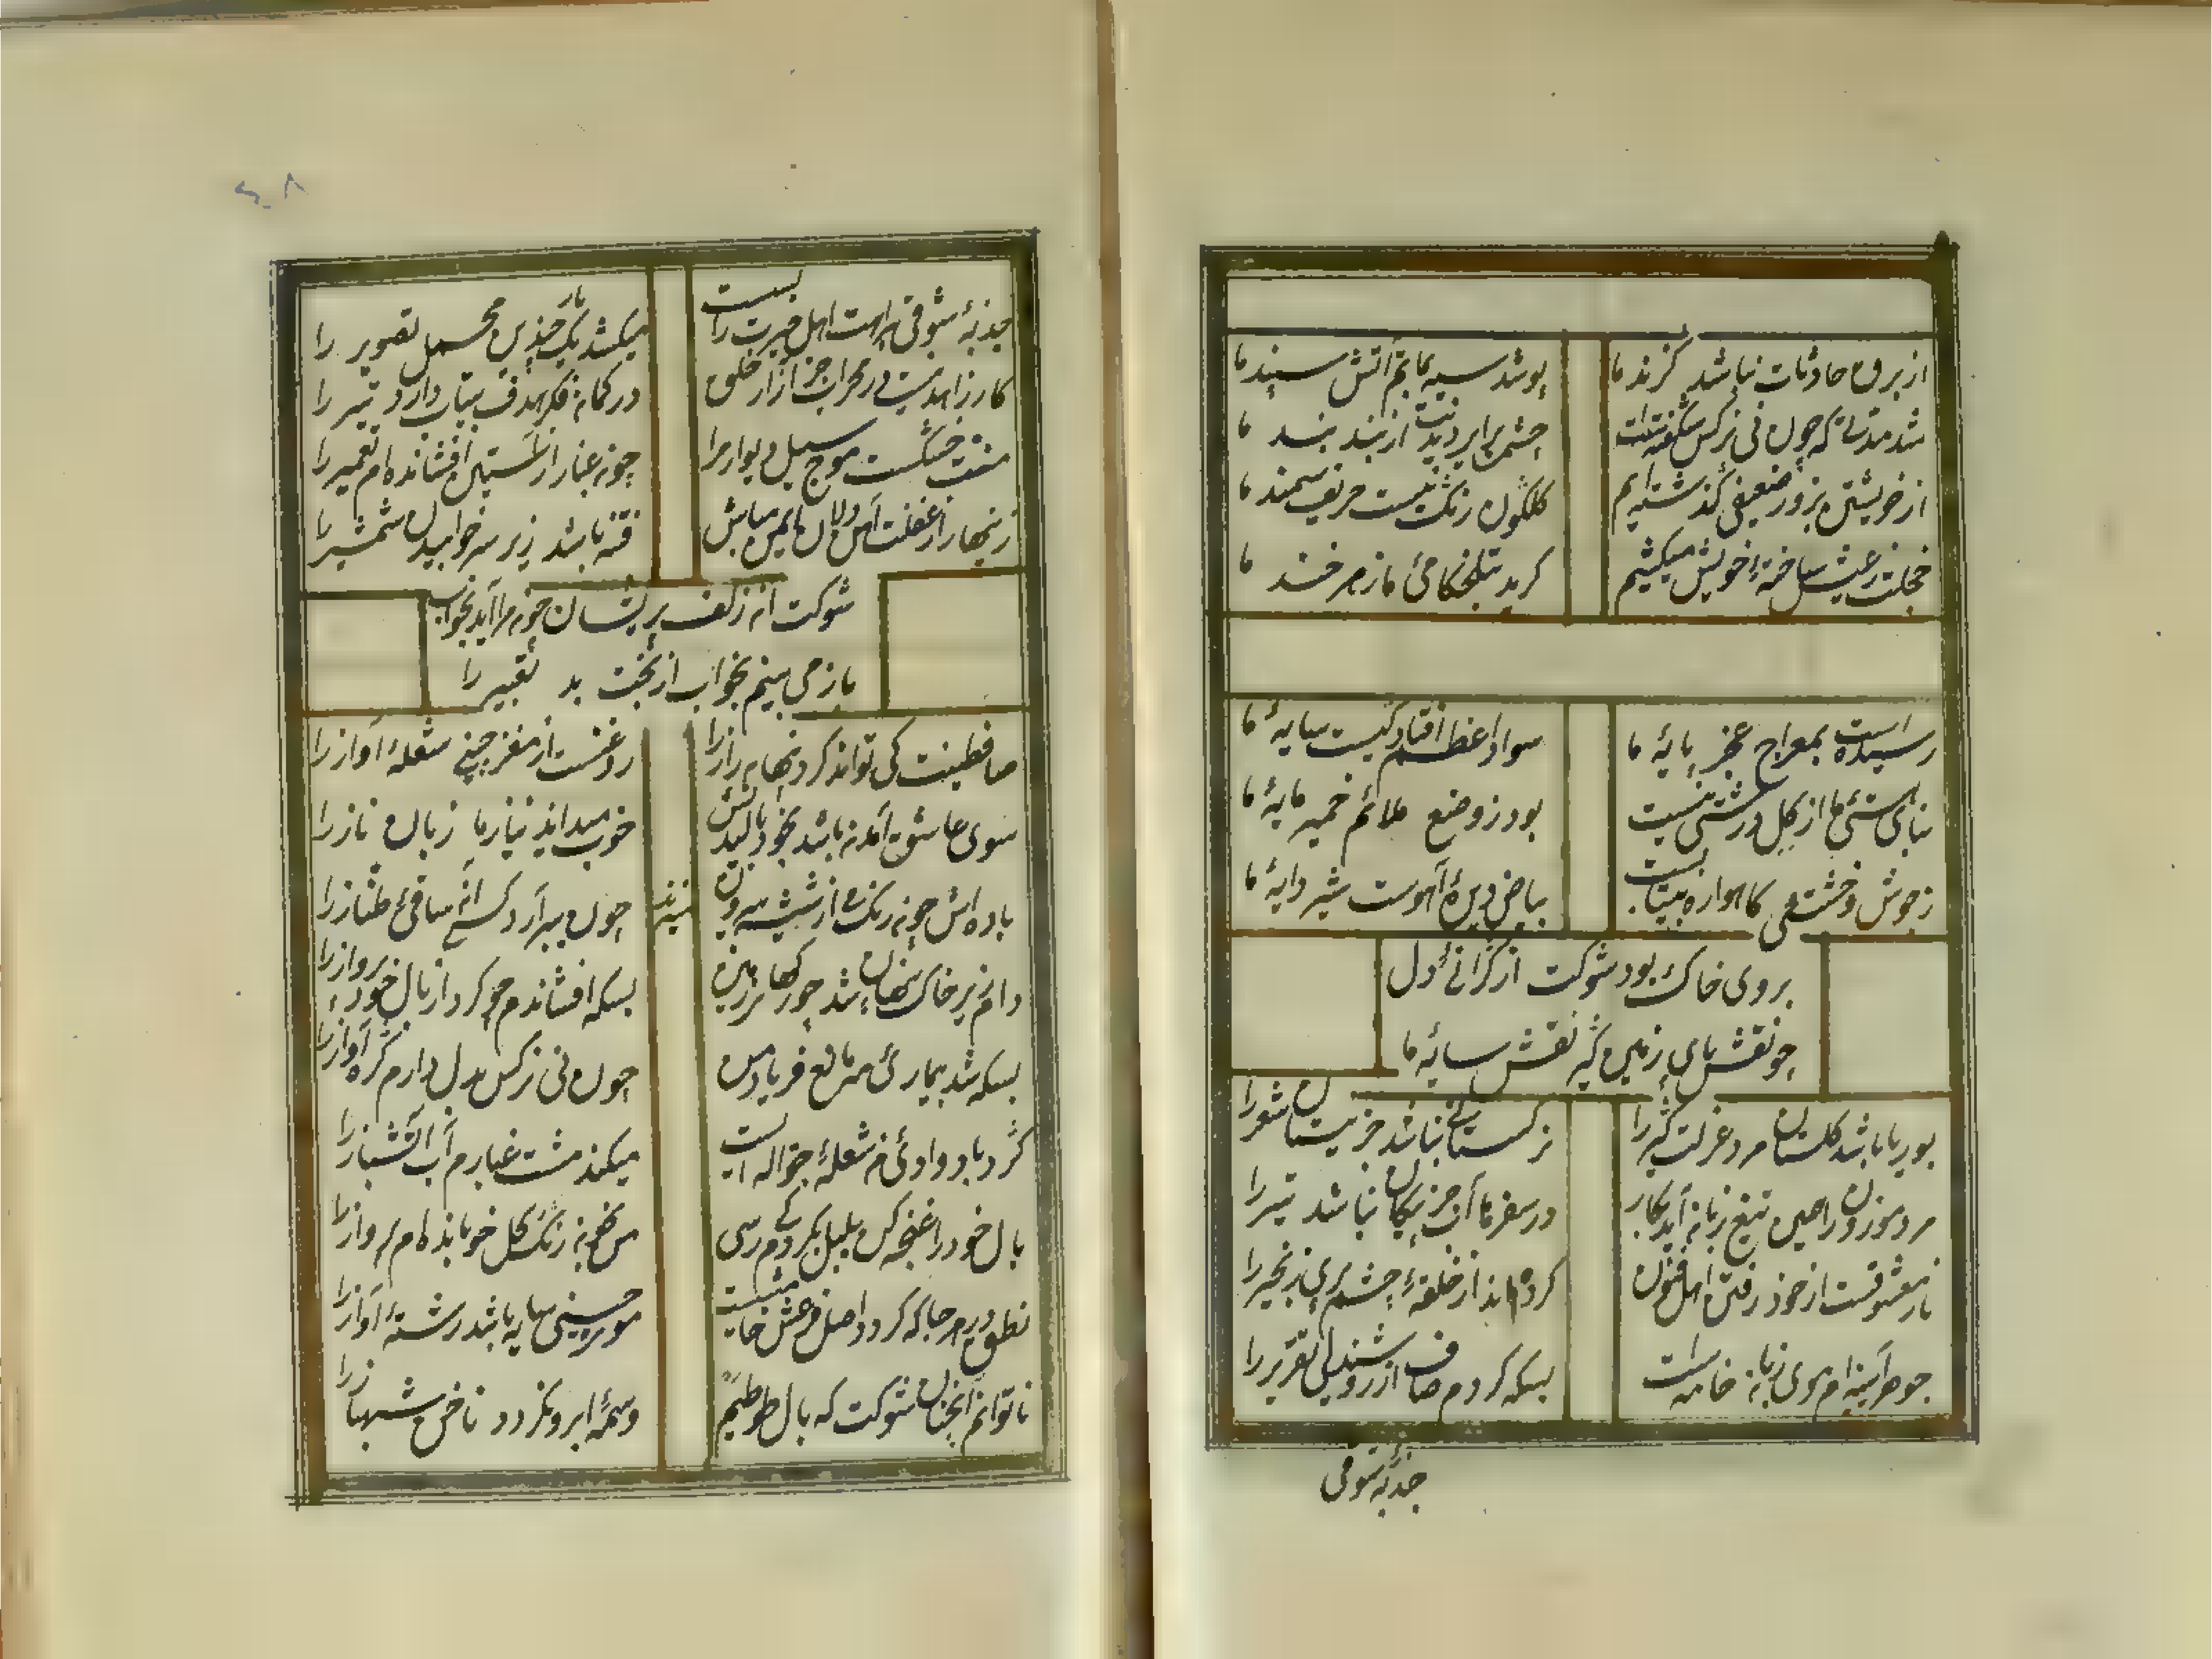 از برق حادثات نباشد گزند ما
پوشد سیه بماتم آتش سپند ما
شد مدتی که چون نی نرگس شکفته است
چشم براه دیدنت از بند بند ما
از خویشتن بزور ضعیفی گذشته ایم
گلگون رنگ نیست حریف سمند ما
خجلت ز عیش ساختهٔ خویش میکشیم
گرید بتلخکامی ما زهرخند ما
رسیده است بمعراج عجز پایهٔ ما
سواد اعظم افتادگیست سایهٔ ما
بنای هستی ما از گل درشتی نیست
بود ز وضع ملائم خمیر مایهٔ ما
ز جوش وحشت طفلی کاهواره بیتابست
بیاض دیدهٔ آهوست شیر دایهٔ ما
بروی خاک بود شوکت از گرانی دل
چو نقش پای زمین گیر نقش سایهٔ ما
بوریا باشد گلستان مرد عزلت گیر را
نرگستانی نباشد جز نیستان شیر را
مرد موزون را همین تیغ زبان آید بکار
در سفرها آب جز پیکان نباشد تیر را
بار معشوقست از خود رفتن اهل جنون
کرده اند از حلقهٔ چشم پری زنجیر را
جوهر آئینه ام موی زبان خامه است
بسکه کردم صاف از روشندلی تقریر را
جذبهٔ شوقی
جذبهٔ شوقی براهت اهل حیرت را بست
میکشد یک جذبه بار محمل تصویر را
کار زاهد نیست در محراب جز آزار خلق
در کمان فکر هدف بیتاب دارد تیر را
منت خشکست موج سیل دیوار مرا
چون غبار از آستین افشانده ام تعمیر را
زینهار از غفلت آهن دلان ایمن مباش
فتنه باشد زیر سر خوابیدن شمشیر را
شوکت آن زلف پریشان چون مرا آید بخواب
باز می بینم بخواب از بخت بد تعبیر را
صاف طینت کی تواند کرد پنهان راز را
روغنست از مغز چینی شعلهٔ آواز را
سوی عاشق آمدن باشد بخود بالیدنش
خوب میداند نیاز ما زبان ناز را
باده اش چون رنگ می از شیشه میزند بیرون
چون برآرد کس از می ساقی طناز را
دام زیر خاک پنهان شد چو رگهای زمین
بسکه افشاندم چو گرد از بال خود پرواز را
بسکه شد بیماری من مانع فریاد من
چون نی نرگس بدل دارم گره آواز را
گردباد وادی من شعلهٔ جواله است
میکند مشت غبارم آب آتشباز را
بال خود را غنچه کن بلبل بگرد من رسی
من بخون رنگ گل خوابانده ام پرواز را
نطق دیدم هر جا که گردد واصل من عشق خامیست
موی چینی سایه باشد رشتهٔ آواز را
ناتوانم آنچنان شوکت که بال طوطیم
وسمهٔ ابرو نگردد ناخن شهباز را